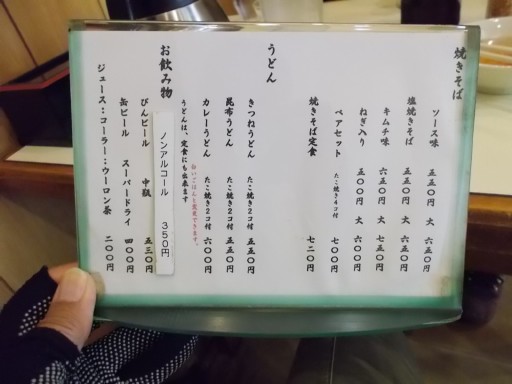 焼きそば
ソース味 五五〇円 大 六五〇円
塩焼きそば 五五〇円 大 六五〇円
キムチ味 六五〇円 大 七五〇円
ねぎ入り 五五〇円 大 六五〇円
ペアセット たこ焼き4コ付 七〇〇円
焼きそば定食 七二〇円
うどん
きつねうどん たこ焼き2コ付 五五〇円
昆布うどん たこ焼き2コ付 五五〇円
カレーうどん たこ焼き2コ付 六〇〇円
うどんは、定食にも出来ます
白いごはんと変更できます。
お飲み物
ノンアルコール 350円
びんビール 中瓶 五三〇円
缶ビール スーパードライ 四〇〇円
ジュース:コーラー:ウーロン茶 二〇〇円